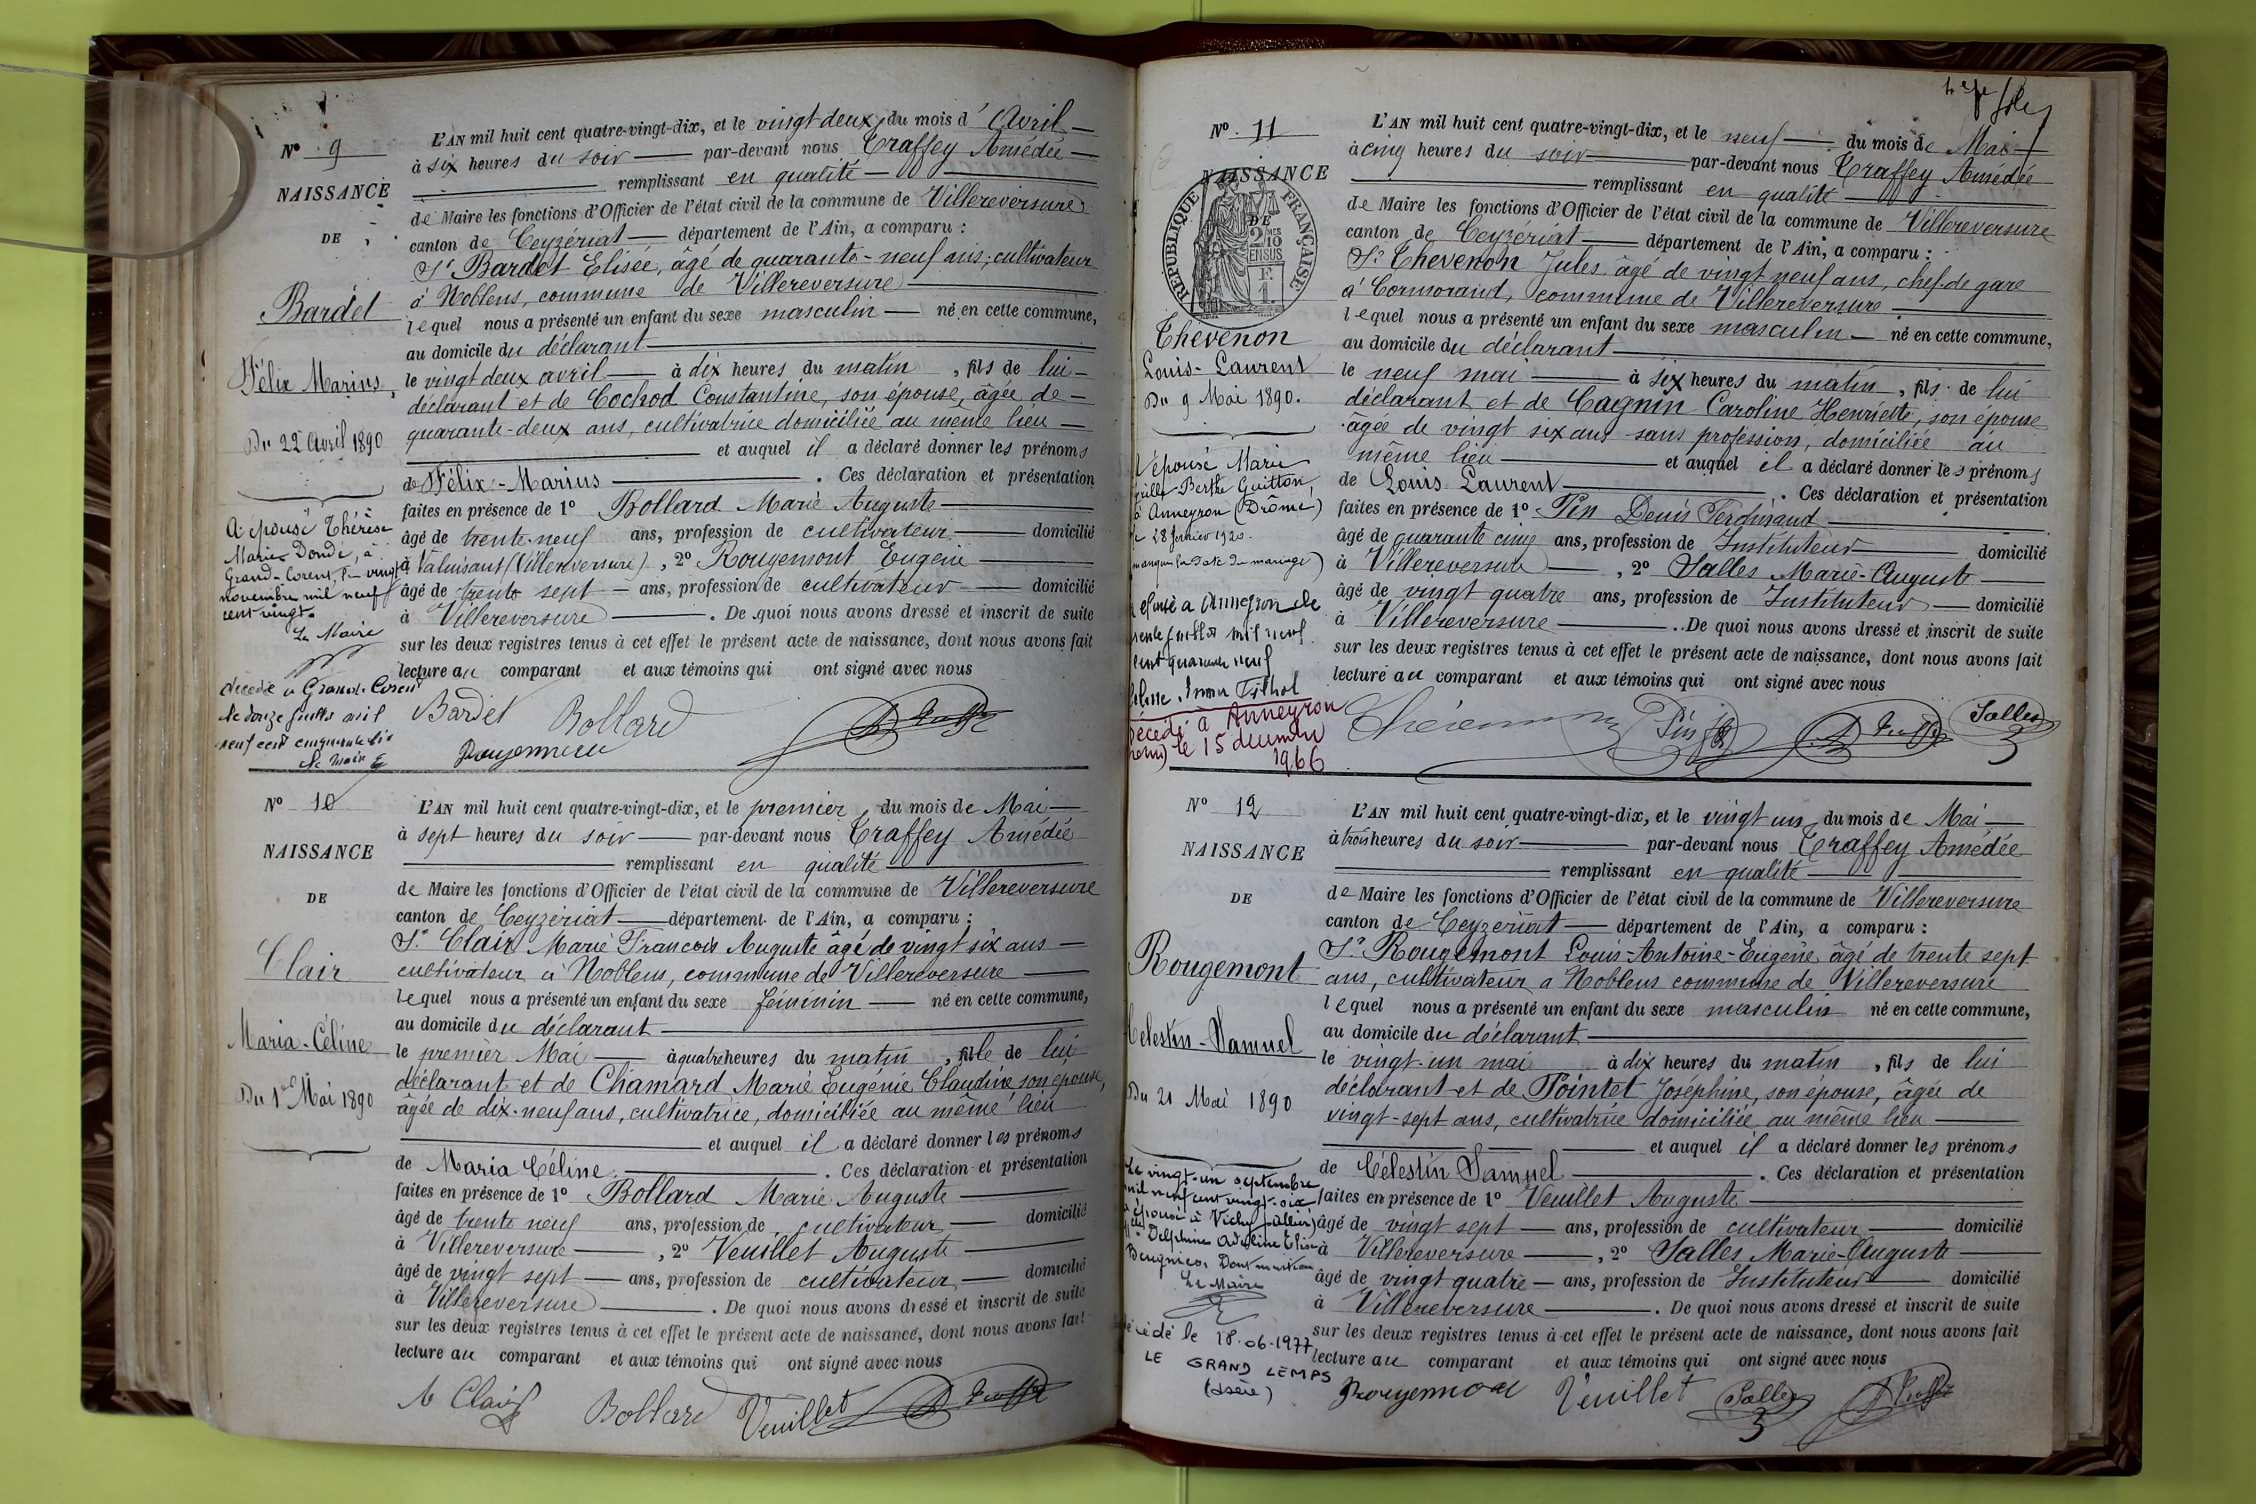 Nº 9
NAISSANCE
DE
Bardet
Félix Marius
Du 22 Avril 1890
A épousé Thérèse
Marie Dondé, à
Grand-Corent, le vingt
novembre mil neuf
cent vingt.
Le Maire
décédé à Grand-Corent
le douze juillet mil
neuf cent cinquante six
Le Maire
L'AN mil huit cent quatre-vingt-dix, et le vingt deux du mois d'Avril
à six heures du soir par-devant nous Traffey Amédée
remplissant en qualité
de Maire les fonctions d'Officier de l'état civil de la commune de Villereversure
canton de Ceyzériat département de l'Ain, a comparu :
Sr Bardet Elisée, âgé de quarante-neuf ans, cultivateur
à Noblens, commune de Villereversure
lequel nous a présenté un enfant du sexe masculin né en cette commune,
au domicile du déclarant
le vingt deux avril à dix heures du matin, fils de lui
déclarant et de Cochod Constantine, son épouse, âgée de
quarante-deux ans, cultivatrice domiciliée au même lieu
et auquel il a déclaré donner les prénoms
de Félix-Marius . Ces déclaration et présentation
faites en présence de 1º Bollard Marie Auguste
âgé de trente-neuf ans, profession de cultivateur domicilié
à Valuisant (Villereversure), 2º Rougemont Eugène
âgé de trente sept ans, profession de cultivateur domicilié
à Villereversure . De quoi nous avons dressé et inscrit de suite
sur les deux registres tenus à cet effet le présent acte de naissance, dont nous avons fait
lecture au comparant et aux témoins qui ont signé avec nous
Bardet Bollard
Rougemont
Nº 10
NAISSANCE
DE
Clair
Maria-Céline
Du 1er Mai 1890
L'AN mil huit cent quatre-vingt-dix, et le premier du mois de Mai
à sept heures du soir par-devant nous Traffey Amédée
remplissant en qualité
de Maire les fonctions d'Officier de l'état civil de la commune de Villereversure
canton de Ceyzériat département de l'Ain, a comparu :
Sr Clair Marie François Auguste âgé de vingt six ans
cultivateur à Noblens, commune de Villereversure
lequel nous a présenté un enfant du sexe féminin né en cette commune,
au domicile du déclarant
le premier Mai à quatre heures du matin, fille de lui
déclarant et de Chamard Marie Eugénie Claudine son épouse,
âgée de dix-neuf ans, cultivatrice, domiciliée au même lieu
et auquel il a déclaré donner les prénoms
de Maria Céline . Ces déclaration et présentation
faites en présence de 1º Bollard Marie Auguste
âgé de trente neuf ans, profession de cultivateur domicilié
à Villereversure , 2º Veuillet Auguste
âgé de vingt sept ans, profession de cultivateur domicilié
à Villereversure . De quoi nous avons dressé et inscrit de suite
sur les deux registres tenus à cet effet le présent acte de naissance, dont nous avons fait
lecture au comparant et aux témoins qui ont signé avec nous
Clair Bollard Veuillet
Nº 11
NAISSANCE
DE
RÉPUBLIQUE FRANÇAISE
2 10MES
EN SUS
Thévenon
Louis-Laurent
Du 9 Mai 1890.
épousé Marie
Berthe Guitton
à Anneyron (Drôme)
28 février 1920.
(manque la date du mariage)
épousé à Anneyron le
trente juillet mil neuf
cent quarante neuf
décédé à Anneyron
le 15 décembre
1966
L'AN mil huit cent quatre-vingt-dix, et le neuf du mois de Mai
à cinq heures du soir par-devant nous Traffey Amédée
remplissant en qualité
de Maire les fonctions d'Officier de l'état civil de la commune de Villereversure
canton de Ceyzériat département de l'Ain, a comparu :
Sr Thevenon Jules âgé de vingt neuf ans, chef de gare
à Cormoraind, commune de Villereversure
lequel nous a présenté un enfant du sexe masculin né en cette commune,
au domicile du déclarant
le neuf mai à six heures du matin, fils de lui
déclarant et de Cagnin Caroline Henriette, son épouse
âgée de vingt six ans sans profession, domiciliée au
même lieu et auquel il a déclaré donner les prénoms
de Louis Laurent . Ces déclaration et présentation
faites en présence de 1º Pin Denis Ferdinand
âgé de quarante cinq ans, profession de Instituteur domicilié
à Villereversure , 2º Salles Marie-Auguste
âgé de vingt quatre ans, profession de Instituteur domicilié
à Villereversure . De quoi nous avons dressé et inscrit de suite
sur les deux registres tenus à cet effet le présent acte de naissance, dont nous avons fait
lecture au comparant et aux témoins qui ont signé avec nous
Thévenon Pin Salles
Nº 12
NAISSANCE
DE
Rougemont
Célestin-Samuel
Du 21 Mai 1890
Le vingt-un septembre
mil neuf cent vingt-six
a épousé à Vichy (Allier)
Delphine Adeline Elisa
Dont mention
Le Maire
décédé le 18.06.1977
LE GRAND LEMPS
(Isère)
L'AN mil huit cent quatre-vingt-dix, et le vingt un du mois de Mai
à trois heures du soir par-devant nous Traffey Amédée
remplissant en qualité
de Maire les fonctions d'Officier de l'état civil de la commune de Villereversure
canton de Ceyzériat département de l'Ain, a comparu :
Sr Rougemont Louis-Antoine-Eugène âgé de trente sept
ans, cultivateur à Noblens commune de Villereversure
lequel nous a présenté un enfant du sexe masculin né en cette commune,
au domicile du déclarant
le vingt-un mai à dix heures du matin, fils de lui
déclarant et de Pointet Joséphine, son épouse, âgée de
vingt-sept ans, cultivatrice domiciliée au même lieu
et auquel il a déclaré donner les prénoms
de Célestin Samuel . Ces déclaration et présentation
faites en présence de 1º Veuillet Auguste
âgé de vingt sept ans, profession de cultivateur domicilié
à Villereversure , 2º Salles Marie-Auguste
âgé de vingt quatre ans, profession de Instituteur domicilié
à Villereversure . De quoi nous avons dressé et inscrit de suite
sur les deux registres tenus à cet effet le présent acte de naissance, dont nous avons fait
lecture au comparant et aux témoins qui ont signé avec nous
Rougemont Veuillet Salles